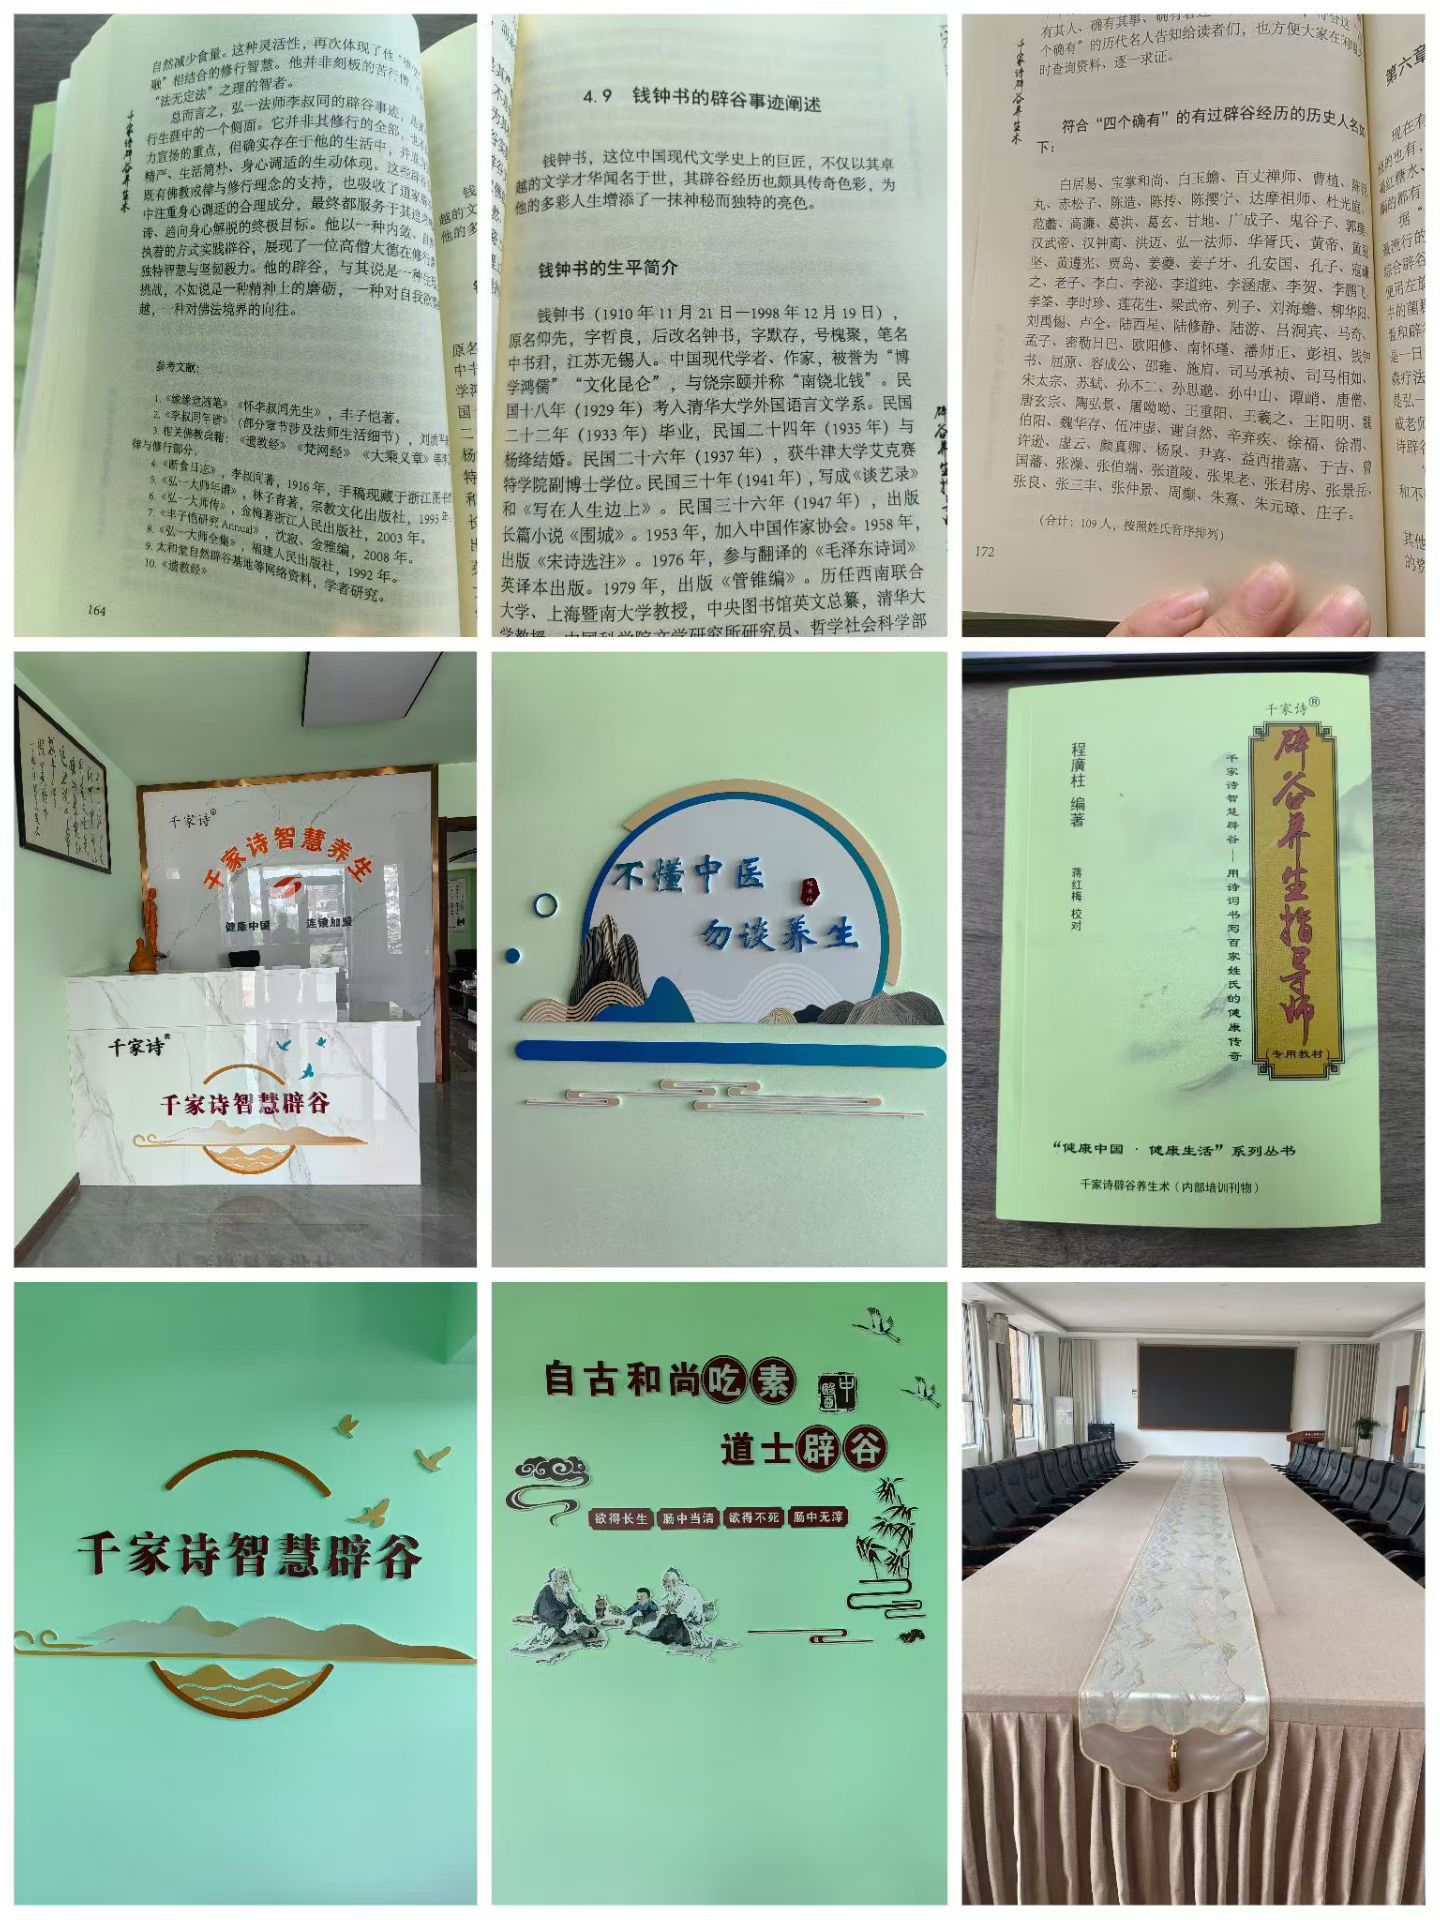 自然减少食量。这种灵活性，再次体现了他
融”相结合的修行智慧。他并非刻板的苦行僧，
“法无定法”之理的智者。
总而言之，弘一法师李叔同的辟谷事迹，是
行生涯中的一个侧面。它并非其修行的全部，也
力宣扬的重点，但确实存在于他的生活中，并
精严、生活简朴、身心调适的生动体现。这些辟谷
既有佛教戒律与修行理念的支持，也吸收了道家
中注重身心调适的合理成分，最终都服务于其追
谛、趋向身心解脱的终极目标。他以一种内敛、自然
执着的方式实践辟谷，展现了一位高僧大德在修行
独特智慧与坚韧毅力。他的辟谷，与其说是一种生
挑战，不如说是一种精神上的磨砺，一种对自我欲
越，一种对佛法境界的向往。
参考文献：
1.《缘缘堂随笔》《怀李叔同先生》，丰子恺著。
2.《李叔同年谱》（部分章节涉及法师生活细节），刘质平
3. 相关佛教典籍：《遗教经》《梵网经》《大乘义章》等
律与修行部分。
4.《断食日志》，李叔同著，1916 年，手稿现藏于浙江图书
5.《弘一大师年谱》，林子青著，宗教文化出版社，1995 年
6.《弘一大师传》，金梅著浙江人民出版社，2003 年。
7.《丰子恺研究 Annual》，沈寂、金雅编，2008 年。
8.《弘一大师全集》，福建人民出版社，1992 年。
9. 太和堂自然辟谷基地等网络资料，学者研究。
10.《遗教经》
164
千家诗辟谷养生术
4.9 钱钟书的辟谷事迹阐述
钱钟书，这位中国现代文学史上的巨匠，不仅以其卓
越的文学才华闻名于世，其辟谷经历也颇具传奇色彩，为
他的多彩人生增添了一抹神秘而独特的亮色。
钱钟书的生平简介
钱钟书（1910 年 11 月 21 日—1998 年 12 月 19 日），
原名仰先，字哲良，后改名钟书，字默存，号槐聚，笔名
中书君，江苏无锡人。中国现代学者、作家，被誉为“博
学鸿儒”“文化昆仑”，与饶宗颐并称“南饶北钱”。民
国十八年（1929 年）考入清华大学外国语言文学系。民国
二十二年（1933 年）毕业，民国二十四年（1935 年）与
杨绛结婚。民国二十六年（1937 年），获牛津大学艾克赛
特学院副博士学位。民国三十年（1941 年），写成《谈艺录》
和《写在人生边上》。民国三十六年（1947 年），出版
长篇小说《围城》。1953 年，加入中国作家协会。1958 年，
出版《宋诗选注》。1976 年，参与翻译的《毛泽东诗词》
英译本出版。1979 年，出版《管锥编》。历任西南联合
大学、上海暨南大学教授，中央图书馆英文总纂，清华大
学教授，中国科学院文学研究所研究员、哲学社会科学部
有其人、确有其事、确有
个确有”的历代名人告知给读者们，也方便大家在闲暇之
时查询资料、逐一求证。
千家诗辟谷养生术
符合“四个确有”的有过辟谷经历的历史人名如
下：
白居易、宝掌和尚、白玉蟾、百丈禅师、曹植、陈
丸、赤松子、陈造、陈抟、陈撄宁、达摩祖师、杜光庭、
范蠡、高濂、葛洪、葛玄、甘地、广成子、鬼谷子、郭璞、
汉武帝、汉钟离、洪迈、弘一法师、华胥氏、黄帝、黄庭
坚、黄遵宪、贾岛、姜夔、姜子牙、孔安国、孔子、寇谦
之、老子、李白、李泌、李道纯、李涵虚、李贺、李鹏飞、
李筌、李时珍、莲花生、梁武帝、列子、刘海蟾、柳华阳、
刘禹锡、卢仝、陆西星、陆修静、陆游、吕洞宾、马奇、
孟子、密勒日巴、欧阳修、南怀瑾、潘师正、彭祖、钱钟
书、屈原、容成公、邵雍、施肩、司马承祯、司马相如、
宋太宗、苏轼、孙不二、孙思邈、孙中山、谭峭、唐僧、
唐玄宗、陶弘景、屠呦呦、王重阳、王羲之、王阳明、魏
伯阳、魏华存、伍冲虚、谢自然、辛弃疾、徐福、徐渭、
许逊、虚云、颜真卿、杨泉、尹喜、益西措嘉、于吉、曾
国藩、张濠、张伯端、张道陵、张果老、张君房、张景岳、
张良、张三丰、张仲景、周颠、朱熹、朱元璋、庄子。
（合计：109 人，按照姓氏音序排列）
172
第六章
千家诗®
千家诗智慧养生
健康中国 连锁加盟
千家诗®
千家诗智慧辟谷
不懂中医
勿谈养生
千家诗®
辟谷养生指导师
（专用教材）
千家诗智慧辟谷—用诗词书写百家姓氏的健康传奇
程廣柱 编著
蒋红梅 校对
“健康中国 · 健康生活”系列丛书
千家诗辟谷养生术（内部培训刊物）
千家诗智慧辟谷
自古和尚吃素
中醫
道士辟谷
欲得长生 肠中当清 欲得不死 肠中无滓